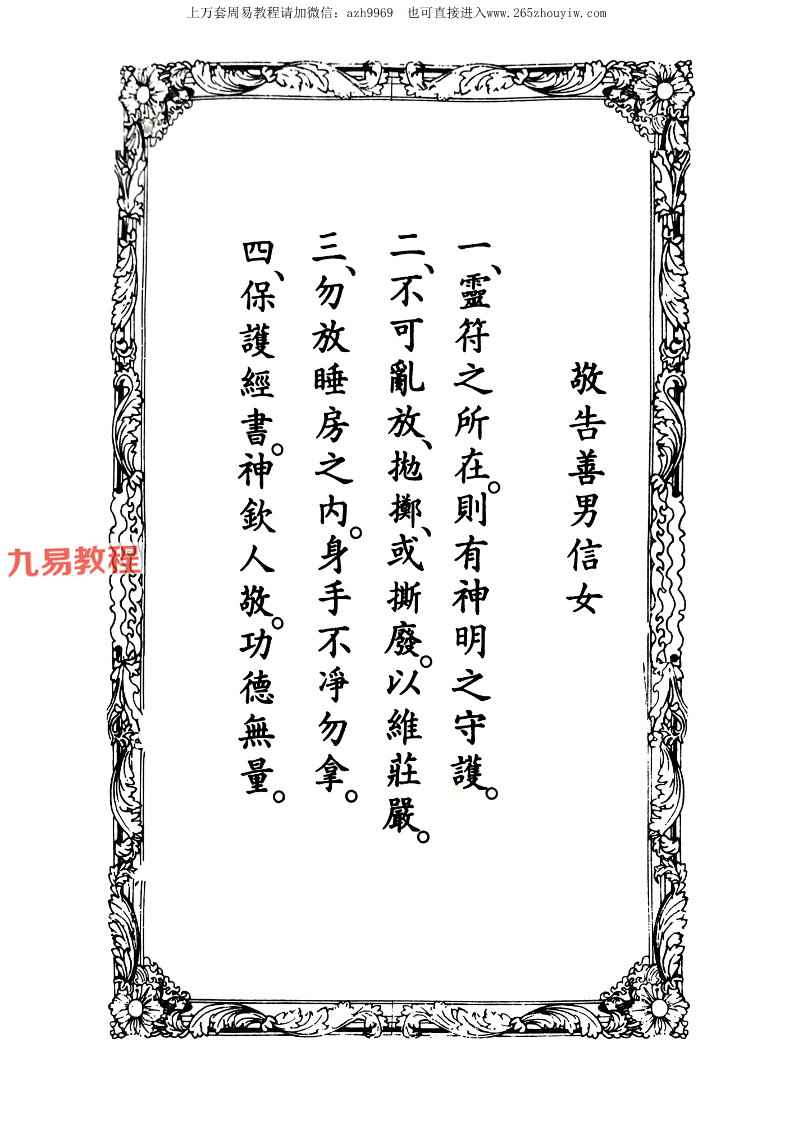 上万套周易教程请加微信：azh9969　也可直接进入www.265zhouyiw.com
敬告善男信女
一、靈符之所在。則有神明之守護。
二、不可亂放、拋擲、或撕廢。以維莊嚴。
三、勿放睡房之內。身手不淨勿拿。
四、保護經書。神欽人敬。功德無量。
九易教程